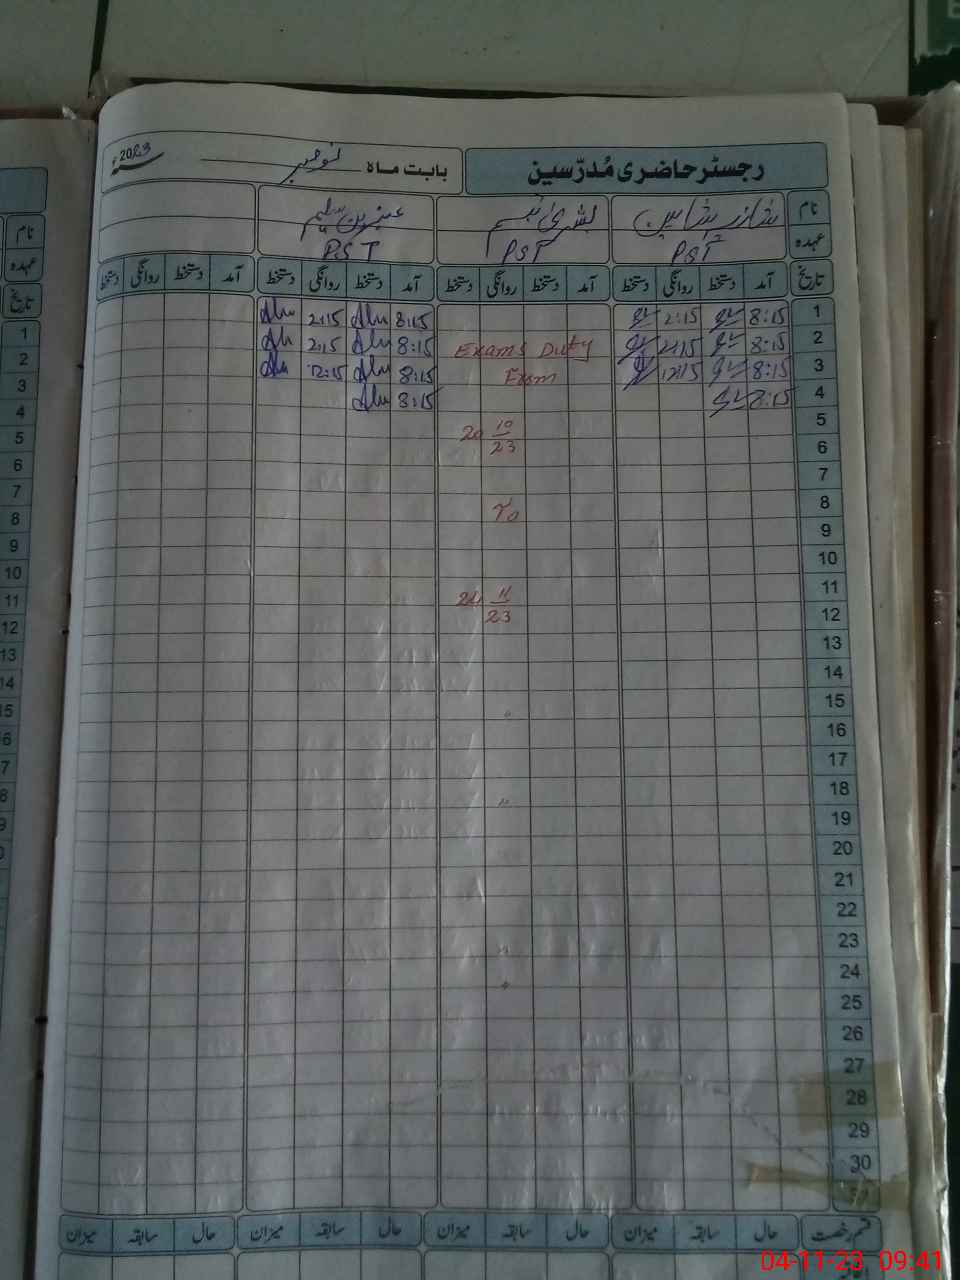 رجسٹر حاضری مُدرّسین
بابت ماہ نومبر 2023ء
نام شازیہ شاہین بشریٰ تبسم عنبرین سلیم
عہدہ PST PST PST
تاریخ آمد دستخط روانگی دستخط آمد دستخط روانگی دستخط آمد دستخط روانگی دستخط آمد دستخط روانگی دستخط
1 8:15 2:15 8:15 2:15
2 8:15 2:15 Exams Duty 8:15 2:15
3 8:15 12:15 Exam 8:15 12:15
4 8:15 8:15
5 20 10
6 23
7
8 To
9
10
11 11
12 23
13
14
15
16
17
18
19
20
21
22
23
24
25
26
27
28
29
30
31
قسم رخصت حال سابقہ میزان حال سابقہ میزان حال سابقہ میزان حال سابقہ میزان
نام
عہدہ
تاریخ
1
2
3
4
5
6
7
8
9
10
11
12
13
14
04-11-23 09:41